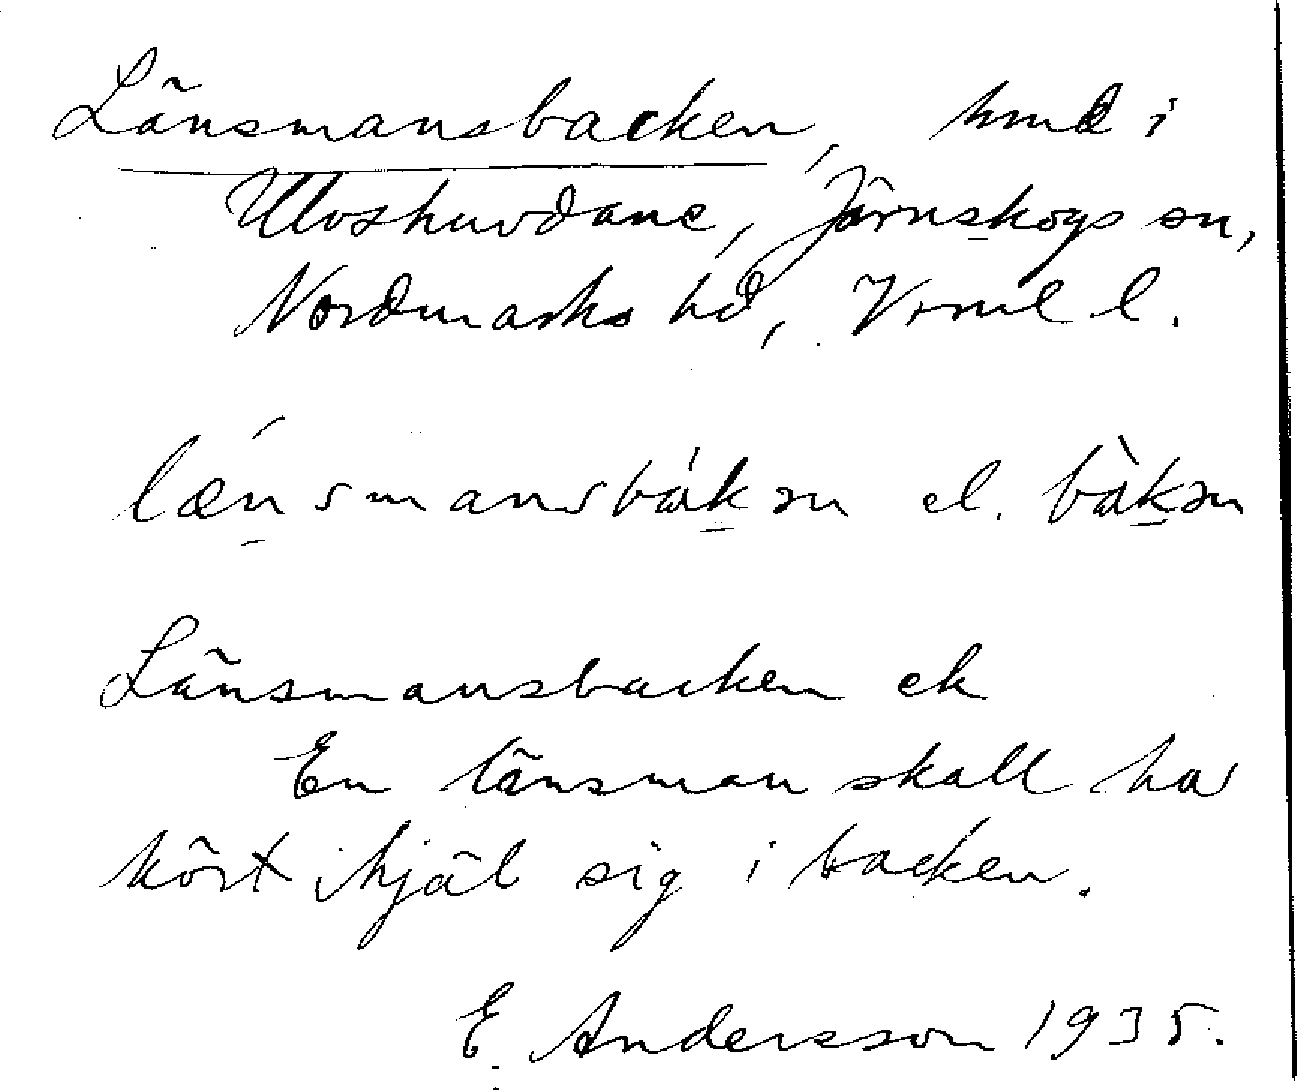 Länsmansbacken, hmd i
Ulvshuvdane, Järnskogs sn,
Nordmarks hd, Vrml l.
læ̀nsmansbákən el. bàkən
Länsmansbacken ek
En länsman skall ha
kört ihjäl sig i backen.
E Andersson 1935.